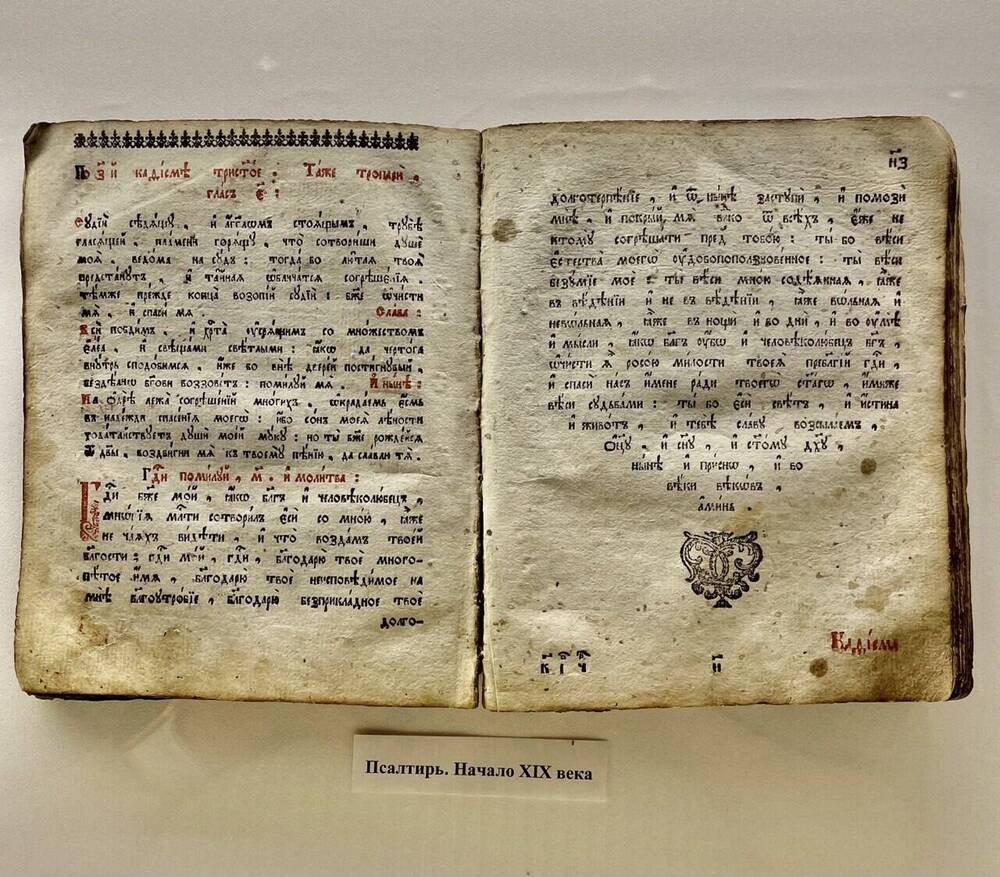 По з҃й каѳі́смѣ трист҃о́е : Та́же тропари̑ ,
гла́съ є҃ :
Сꙋдїй сѣдѧ́щꙋ , и҆ а҆́гг҃лѡмъ стоѧ́щымъ , трꙋбѣ̀
гласѧ́щей , пла́мени горѧ́щꙋ , что̀ сотвори́ши дꙋшѐ
моѧ̀ , ведо́ма на сꙋ́дъ : тогда́ бо лю̑таѧ твоѧ̑
предста́нꙋтъ , и҆ та̑йнаѧ ѡ҆блича́тсѧ согрѣшє́нїѧ .
тѣ́мже пре́жде конца̀ возопїй сꙋдїй : бж҃е ѡ҆чи́сти
мѧ̀ , и҆ сп҃си́ мѧ . Сла́ва :
Всѝ побди́мъ , и҆ хр҃та̀ ᲂу҆срѧ́щимъ со мно́жествомъ
є҆ле́а , и҆ свѣща́ми свѣ́тлыми : ꙗ҆́кѡ да черто́га
внꙋ́трь сподо́бимсѧ , и҆́же бо внѣ̀ двере́й пости́гнꙋвый ,
бездѣ́льнѡ бг҃ови воззове́тъ : поми́лꙋй мѧ̀ . И҆ ны́нѣ :
На ѻ҆дрѣ̀ лежа̀ согрѣше́нїй мно́гихъ , ѡ҆кра́даемь є҆́смь
въ наде́жди спасе́нїѧ моегѡ̀ : и҆́бо со́нъ моеѧ̀ лѣ́ности
хода́тайствꙋетъ дꙋшѝ мое́й мꙋ́кꙋ : но ты̀ бж҃е рожде́йсѧ
ѿ дв҃ы , воздви́гни мѧ̀ къ твоемꙋ̀ пѣ́нїю , да сла́влю тѧ̀ .
Гд҃и поми́лꙋй , м҃ . и҆ моли́тва :
Гд҃и бж҃е мо́й , ꙗ҆́кѡ бл҃гъ и҆ человѣколю́бецъ ,
мнѡ́гїѧ мл҃ти сотвори́лъ є҆сѝ со мно́ю , ꙗ҆̀же
не ча́ѧхъ ви́дѣти , и҆ что̀ возда́мъ твое́й
бл҃гости : гд҃и мо́й , гд҃и , бл҃годарю̀ твоѐ много-
пѣ́тое и҆́мѧ , бл҃годарю̀ твоѐ неисповѣди́мое на
мнѣ̀ бл҃гоꙋтро́бїе , бл҃годарю̀ безприкла́дное твоѐ
долго-
н҃з
долготерпѣ́нїе , и҆ ѿ ны́нѣ застꙋпѝ , и҆ помозѝ
мнѣ̀ , и҆ покры́й мѧ̀ вл҃ко ѿ всѣ́хъ , є҆́же не
ктомꙋ̀ согрѣша́ти пред̾ тобо́ю : ты́ бо вѣ́си
є҆стества̀ моегѡ̀ ᲂу҆добопоползнове́нное : ты̀ вѣ́си
безꙋ́мїе моѐ : ты̀ вѣ́си мно́ю содѣ̑ѧннаѧ , ꙗ҆̀же
въ вѣ́дѣнїи и҆ не в вѣ́дѣнїи , ꙗ҆̀же вѡ́льнаѧ и҆
невѡ́льнаѧ , ꙗ҆̀же в нощѝ и҆ во дни̑ , и҆ во ᲂу҆мѣ̀
и҆ мы́сли , ꙗ҆́кѡ бл҃гъ ᲂу҆́бѡ и҆ человѣколю́бецъ бг҃ъ ,
ѡ҆чи́сти ѧ҆̀ росо́ю ми́лости твоеѧ̀ пребл҃гїй гд҃и ,
и҆ спасѝ на́съ и҆́мене ра́ди твоегѡ̀ ст҃а́гѡ , и҆́миже
вѣ́си сꙋдьба́ми : ты́ бо є҆сѝ свѣ́тъ , и҆ и҆́стина
и҆ живо́тъ , и҆ тебѣ̀ сла́вꙋ возсыла́емъ ,
ѻ҆ц҃ꙋ̀ , и҆ сн҃ꙋ , и҆ ст҃о́мꙋ дх҃ꙋ ,
ны́нѣ и҆ при́снѡ , и҆ во
вѣ́ки вѣкѡ́въ ,
а҆ми́нь .
Каѳі́смы
и҃
Псалтирь. Начало XIX века